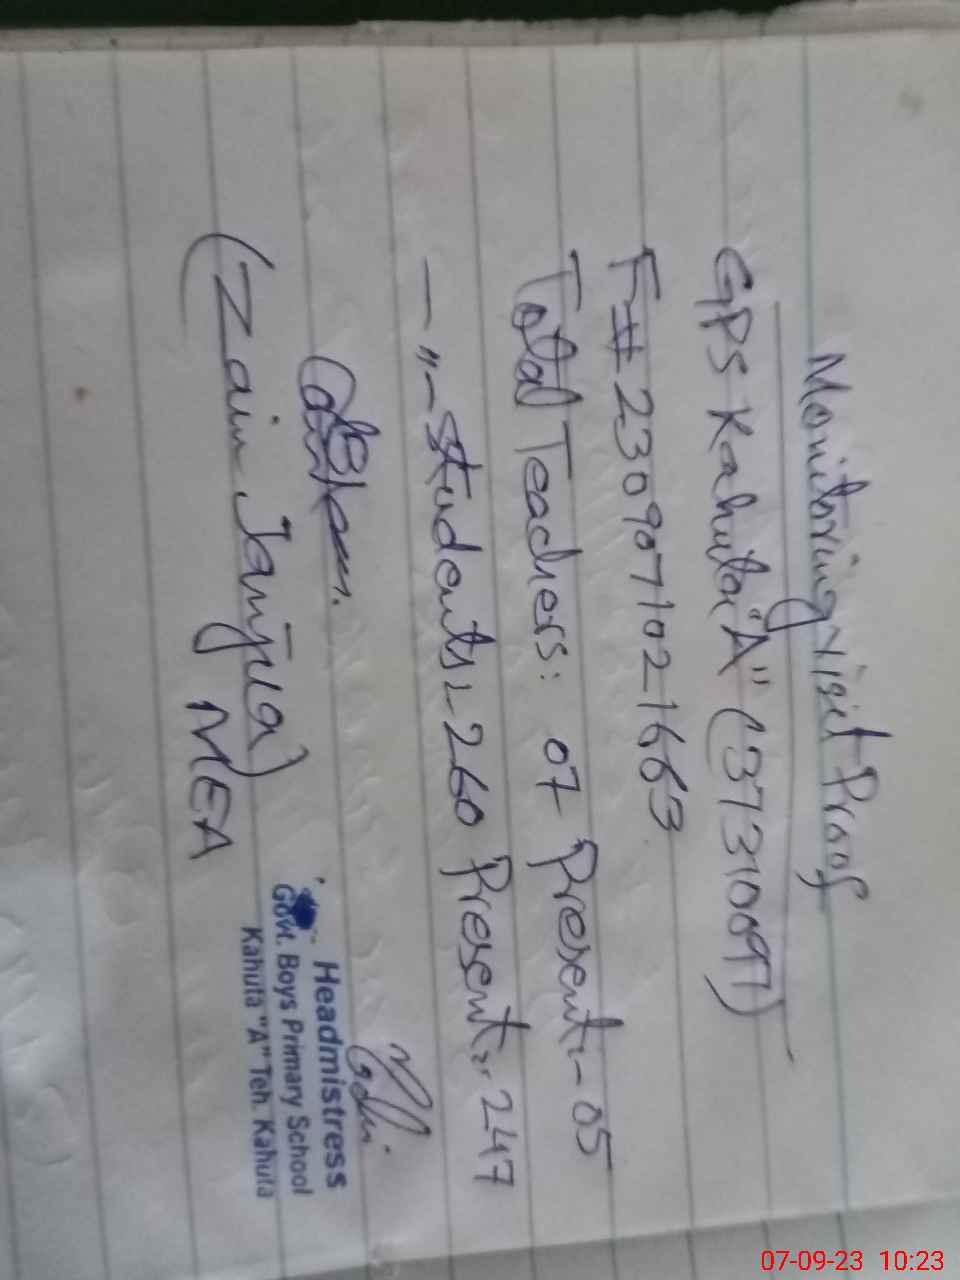 Monitoring visit Proof
GPS Kahuta "A" (37310097)
F# 2309071021663
Total Teachers: 07 Present:- 05
—„— Students:- 260 Present:- 247
(Zain Janjua)
MEA
Headmistress
Govt. Boys Primary School
Kahuta "A" Teh. Kahuta
07-09-23 10:23